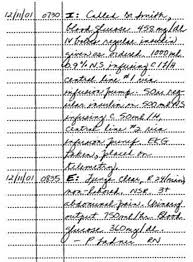 12/11/01 0730 I: Called Dr. Smith,
blood glucose 458 mg/dl
regular insulin
given as ordered. 1000ml
0.9% N.S. infusing @
central line #1 via
infusion pump. 50u reg-
ular insulin in 500ml NS
infusing @ 50ml/H,
central line #2 via
infusion pump. EKG
taken, placed on
telemetry.
12/11/01 0835 E: Lungs clear, R 28/min,
non-labored. NSR. 3+
abdominal pain. Urinary
output 750ml/hr. Blood
glucose 360 mg/dl.
RN